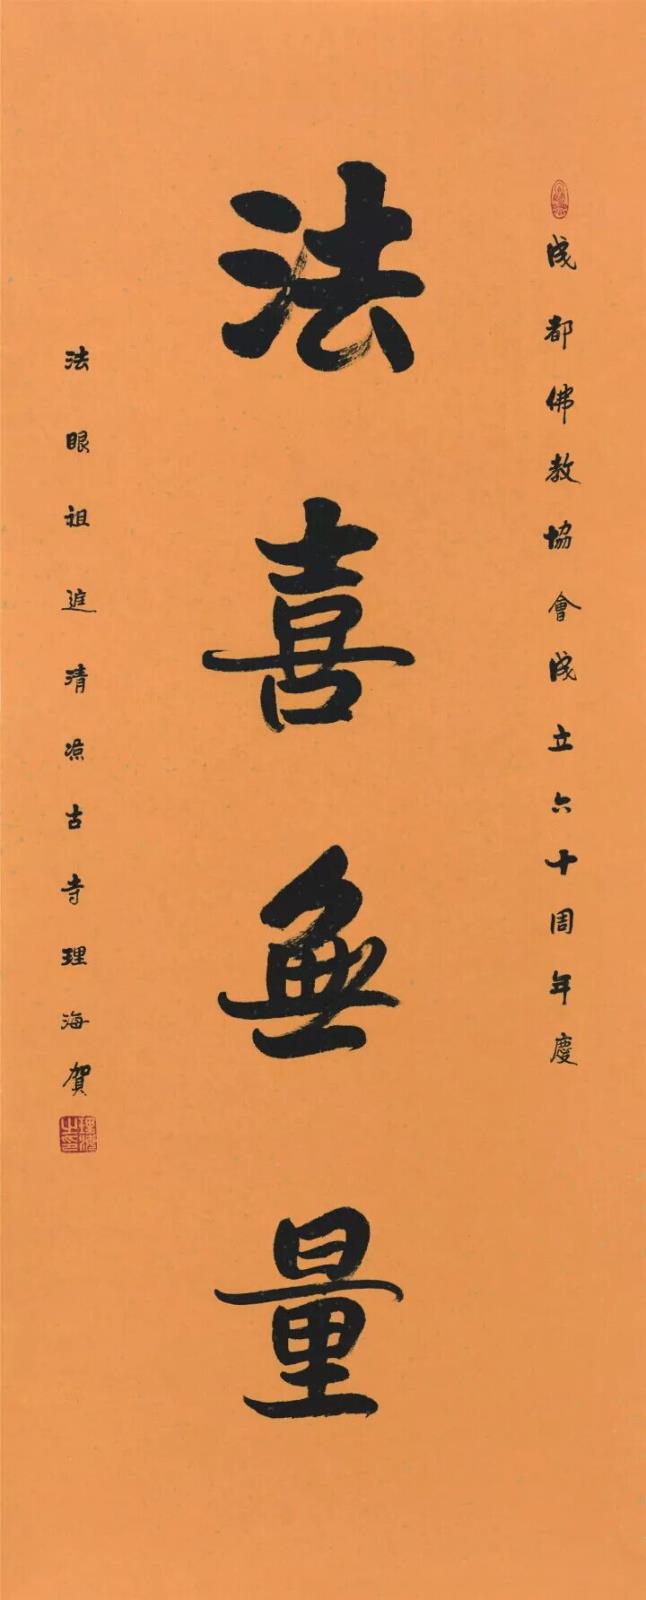 成都佛教協會成立六十周年慶
法喜無量
法眼祖庭清涼古寺理海賀
理海之印